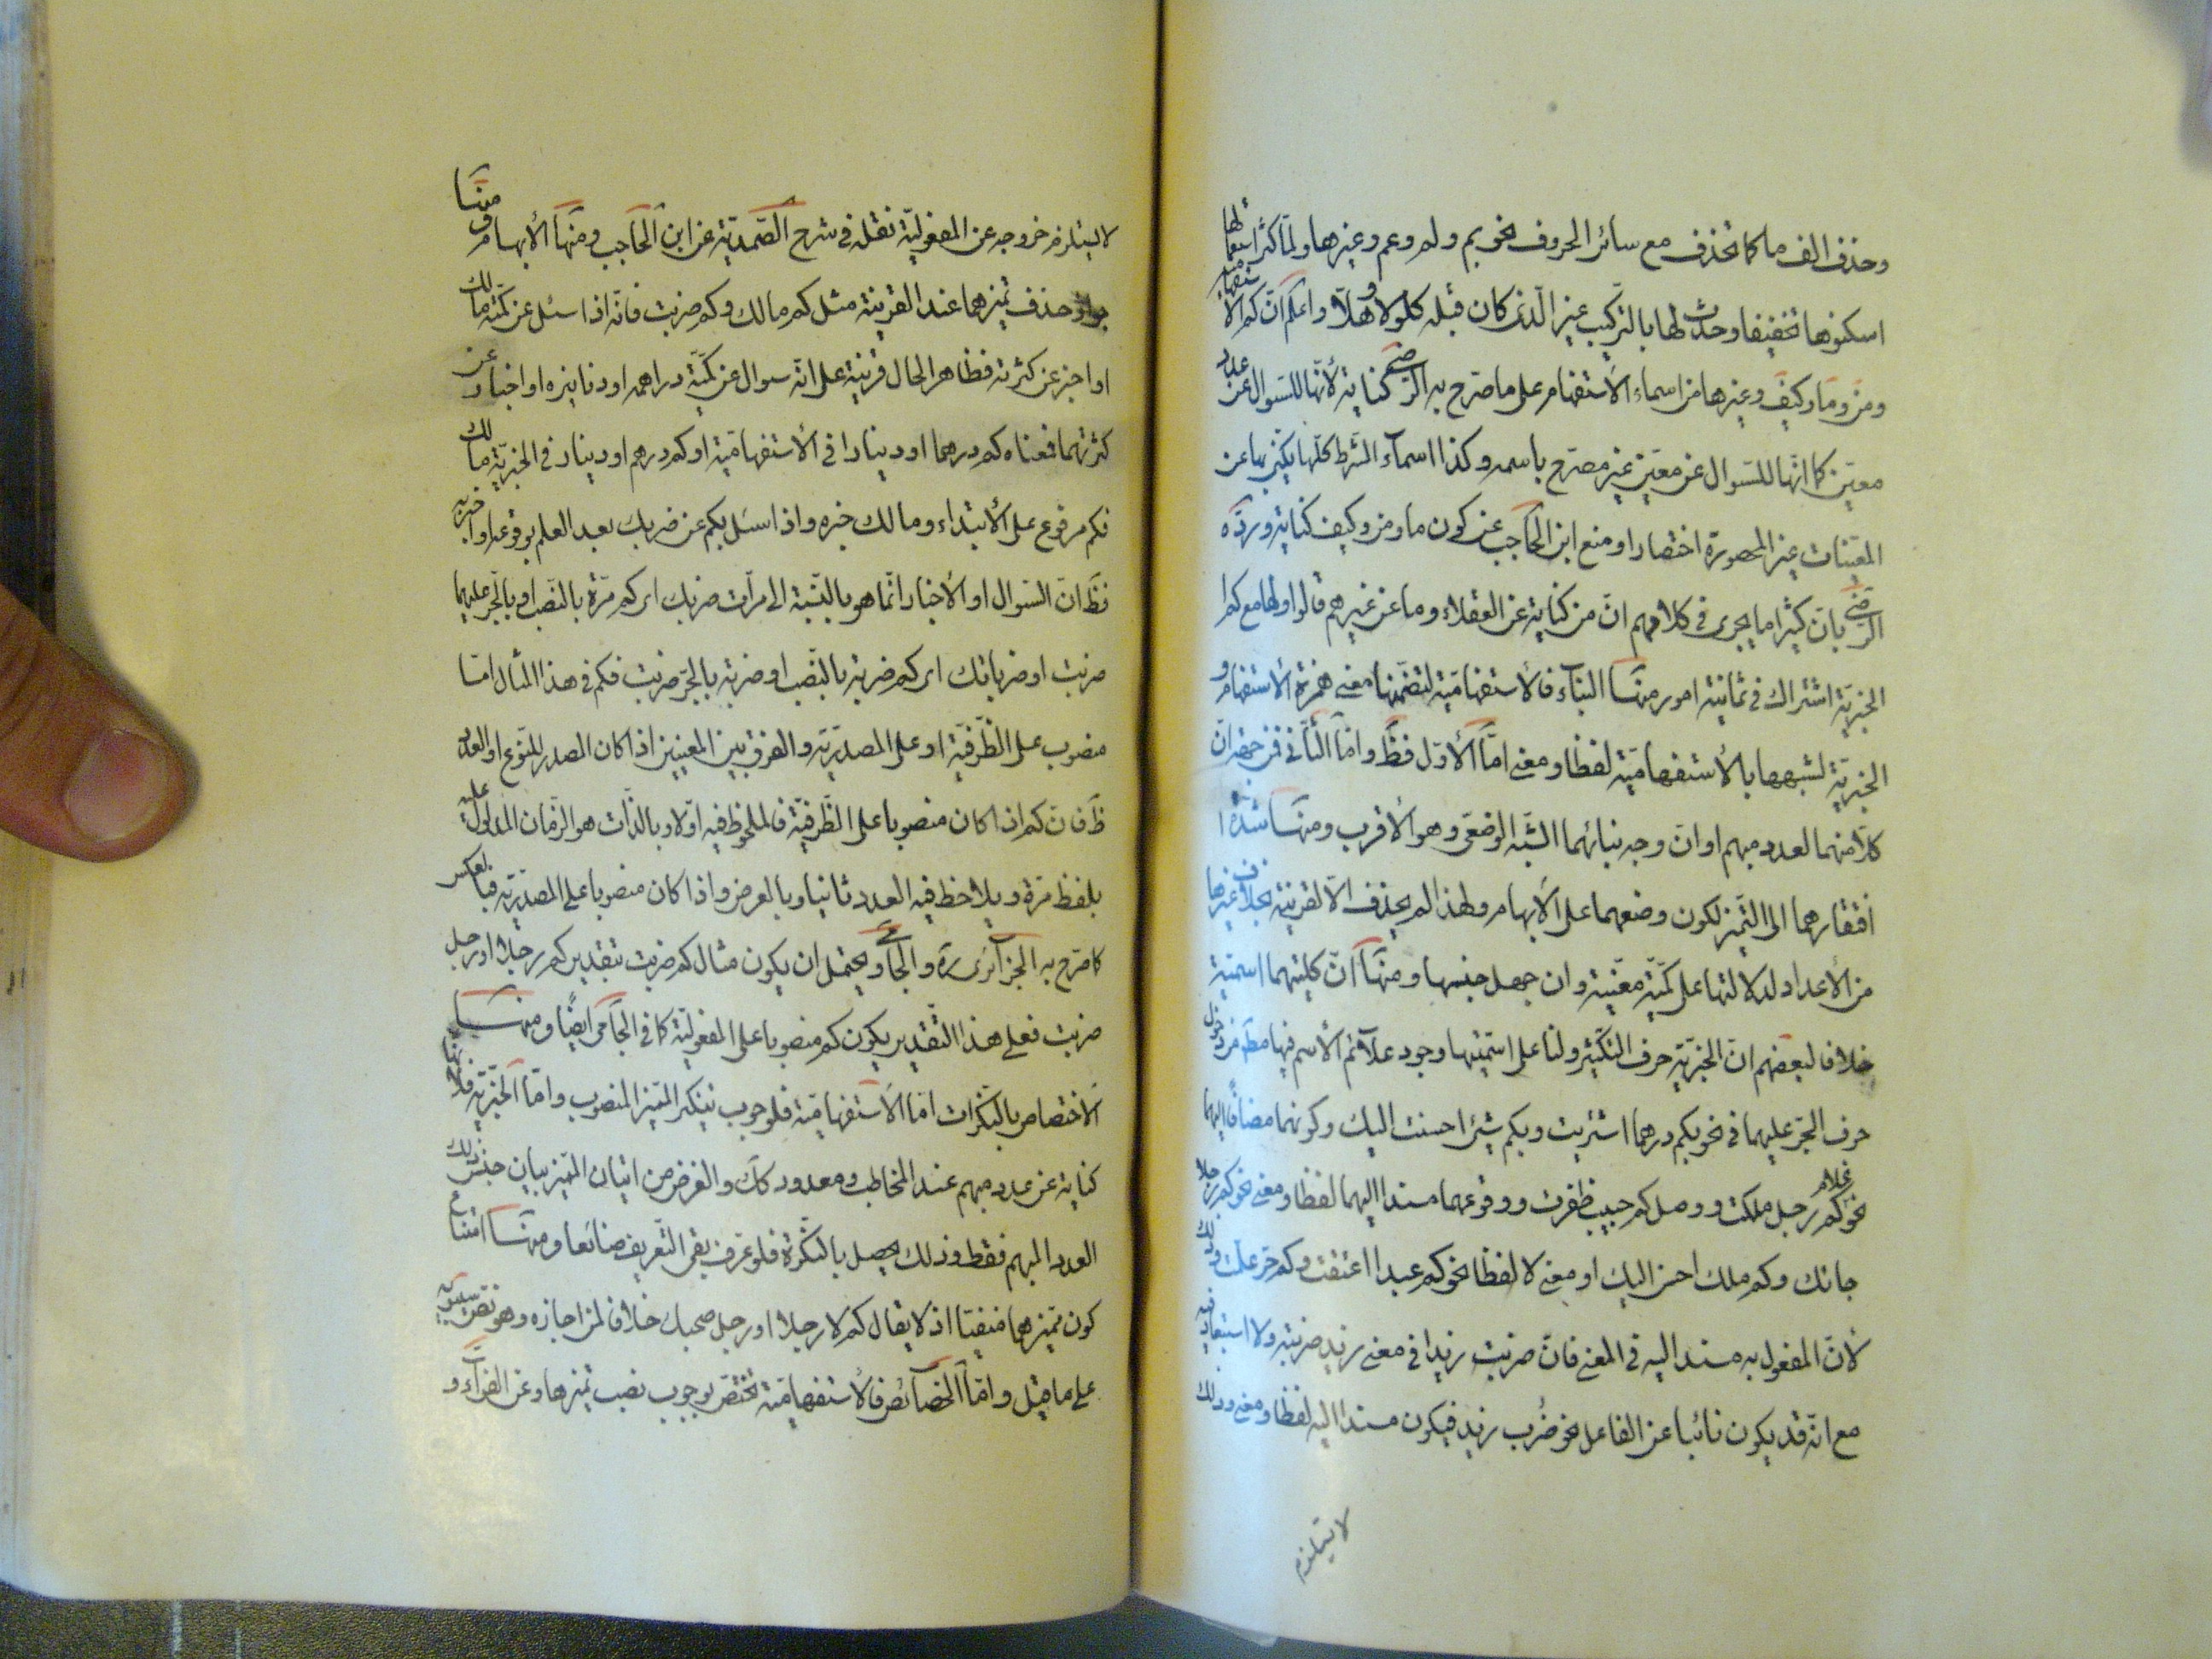 وحذف الف ما كما تحذف مع سائر الحروف نحو بم ولم وعم وغيرها ولمّا كثر استعمالها
اسكنوها تخفيفا وحدث لها بالتركيب غير الّذى كان قبله كلولا وهلّا واعلم انّ كم الاستفهامية
ومن وما وكيف وغيرها من اسماء الاستفهام على ما صرّح به الرّضىّ كناية لأنّها للسّوال عن عدد
معيّن كما انّها للسّوال عن معيّن غير مصرّح باسمه وكذا اسماء الشّرط كلّها يكنّى بها عن
المعيّنات غير المحصورة اختصارا ومنع ابن الحاجب عن كون ما ومن وكيف كناية وردّه
الرّضىّ بانّ كثيرا ما يجرى فى كلامهم انّ من كناية عن العقلاء وما عن غيرهم قالوا ولها مع كم
الخبريّة اشتراك فى ثمانية امور منها البناء فالأستفهاميّة لتضمّنها معنى همزة الأستفهام و
الخبريّة لشبهها بالأستفهاميّة لفظا ومعنى امّا الأوّل فظ وامّا الثّانى فمن جهة انّ
كلّا منهما لعدد مبهم او انّ وجه بنائهما الشّبه الوضعى وهو الأقرب ومنها شدّة
افتقارهما الى التّميز لكون وضعهما على الأبهام ولهذا لم يحذف الّا لقرينة بخلاف غيرها
من الأعداد لدلالتها على كمّيّة معيّنة وان جهل جنسها ومنها انّ كليتهما اسميّة
خلافا لبعضهم انّ الخبريّة حرف التكثير ولنا على اسميّتها وجود علائم الأسم فيها مط من دخول
حرف الجرّ عليهما فى نحو بكم درهما اشتريت وبكم شئ احسنت اليك وكونهما مضافا اليهما
نحو غلام كم رجل ملكت ووصل كم حبيب ظفرت ووقوعهما مسندا اليهما لفظا ومعنى نحو كم رجلا
جائك وكم ملك احسن اليك او معنى لا لفظا نحو كم عبدا اعتقت وكم وذلك
لأنّ المفعول به مسند اليه فى المعنى فانّ ضربت زيدا فى معنى زيد ضربته ولا استبعاد فيه
مع انّه قد يكون نائبا عن الفاعل نحو ضُرب زيد فيكون مسندا اليه لفظا ومعنى وذلك
لا يستلزم
لا يستلزم خروجه عن المفعوليّة نقله فى شرح الصّمديّة عن ابن الحاجب ومنها الأبهام ومنها
جواز حذف تميزهما عند القرينة مثل كم مالك وكم ضربت فانّه اذا سئل عن كمّيّة مالك
او اخبر عن كثرته فظاهر الحال قرينة على انّه سوال عن كمّيّة دراهمه او دنانيره او اخبار عن
كثرتهما فمعناه كم درهما او دينارا فى الأستفهاميّة او كم درهم او دينار فى الخبريّة مالك
فكم مرفوع على الأبتداء ومالك خبره واذا سئل بكم عن ضربك بعد العلم بوقوعه او اخبر به
فظ انّ السّوال او الأخبار انّما هو بالنّسبة الى مرّات ضربك اى كم مرّة بالنّصب او بالجرّ عليهما
ضربت او ضرباتك اى كم ضربة بالنّصب او ضربة بالجرّ ضربت فكم فى هذا المثال امّا
منصوب على الظّرفيّة او على المصدريّة والفرق بين المعنيين اذا كان المصدر للنّوع او العدد
ظ فانّ كم اذا كان منصوبا على الظّرفيّة فالملحوظ فيه اوّلا وبالذّات هو الزّمان المدلول عليه
بلفظ مرّة ويلاحظ فيه العدد ثانيا وبالعرض واذا كان منصوبا على المصدريّة فبالعكس
كما صرّح به الجزائرى ره والجامى ويحتمل ان يكون مثال كم ضربت بتقدير كم رجلا او رجل
ضربت فعلى هذا التّقدير يكون كم منصوبا على المفعوليّة كما فى الجامى ايضا ومنها
الأختصاص بالنّكرات امّا الأستفهاميّة فلوجوب تنكير المميّز المنصوب وامّا الخبريّة فلأنّها
كناية عن عدد مبهم عند المخاطب ومعدود كك والغرض من اتيان المميّز بيان جنس ذلك
العدد المبهم فقط وذلك يحصل بالنّكرة فلو عرّف بقى التّعريف ضائعا ومنها امتناع
كون تميزهما منفيّا اذ لا يقال كم لا رجلا او رجل صحبك خلافا لمن اجازه وهو نصّ سيبويه
على ما قيل وامّا الخصائص فالأستفهاميّة تختصّ بوجوب نصب تميزها وعن الفرّاء و